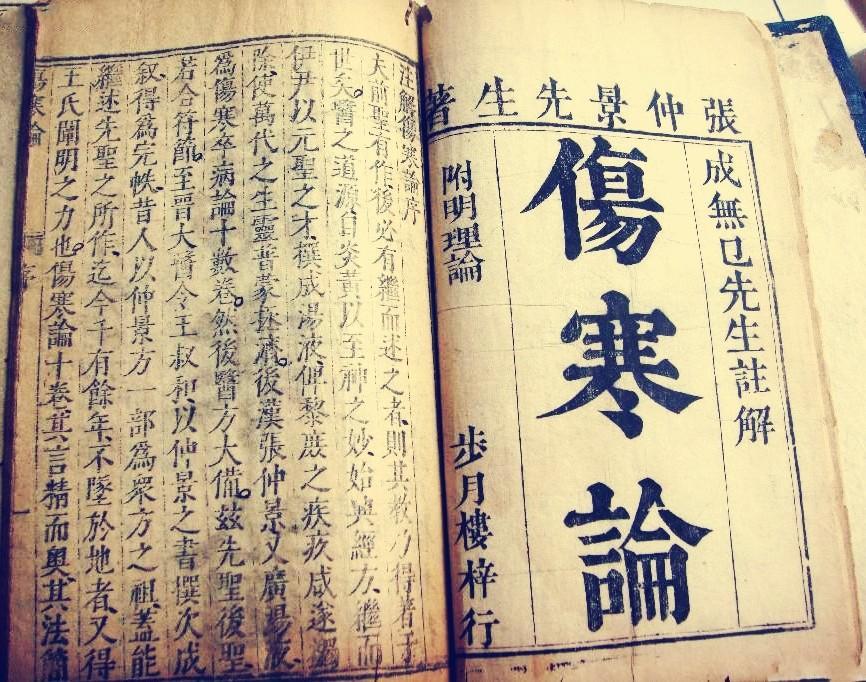 張仲景先生著
成無已先生註解
傷寒論
附明理論
步月樓梓行
注解傷寒論序
夫前聖有作後必有繼而述之者則其教乃得著于
世矣。醫之道源自炎黃以至神之妙始興經方繼而
伊尹以元聖之才撰成湯液俾黎庶之疾疢咸遂蠲
除使萬代之生靈普蒙拯濟。後漢張仲景又廣湯液
為傷寒卒病論十數卷。然後醫方大備。茲先聖後聖
若合符節。至晉大醫令王叔和以仲景之書撰次成
叙得為完帙昔人以仲景方一部為衆方之祖蓋能
繼述先聖之所作迄今千有餘年不墜於地者又得
王氏闡明之力也。傷寒論十卷其言精而奧其法簡
傷寒論
序